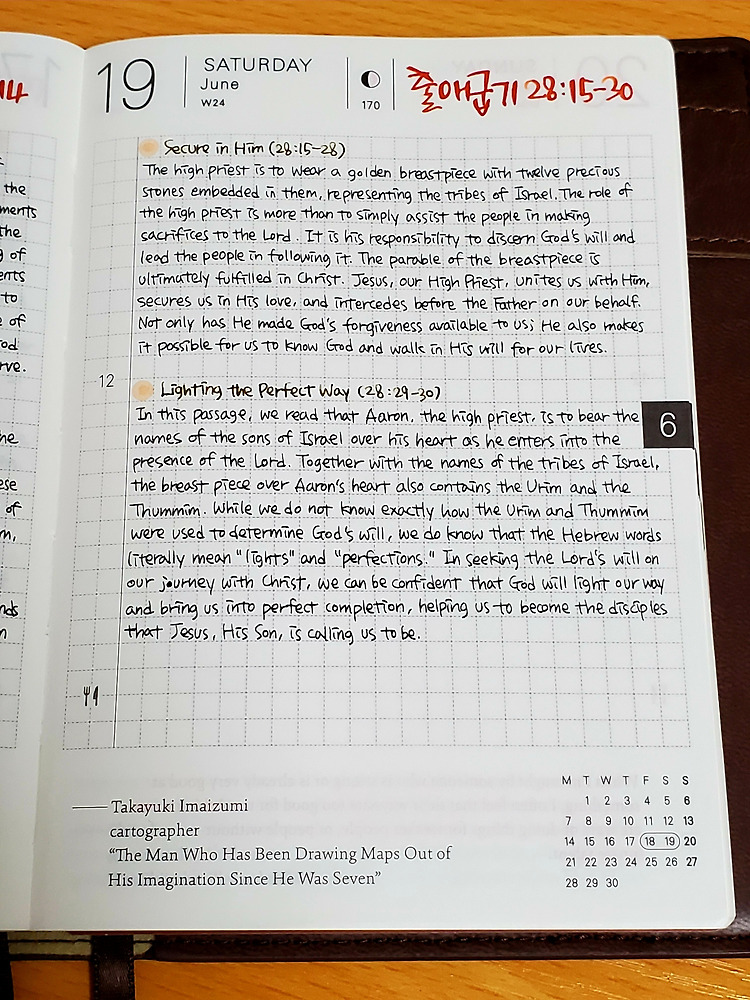 19
SATURDAY
June
W24
170
출애굽기 28:15-30
Secure in Him (28:15-28)
The high priest is to wear a golden breastpiece with twelve precious
stones embedded in them, representing the tribes of Israel. The role of
the high priest is more than to simply assist the people in making
sacrifices to the Lord. It is his responsibility to discern God's will and
lead the people in following it. The parable of the breastpiece is
ultimately fulfilled in Christ. Jesus, our High Priest, unites us with Him,
secures us in His love, and intercedes before the Father on our behalf.
Not only has He made God's forgiveness available to us; He also makes
it possible for us to know God and walk in His will for our lives.
12
Lighting the Perfect Way (28:29-30)
In this passage, we read that Aaron, the high priest, is to bear the
6
names of the sons of Israel over his heart as he enters into the
presence of the Lord. Together with the names of the tribes of Israel,
the breast piece over Aaron's heart also contains the Urim and the
Thummim. While we do not know exactly how the Urim and Thummim
were used to determine God's will, we do know that the Hebrew words
literally mean "lights" and "perfections." In seeking the Lord's will on
our journey with Christ, we can be confident that God will light our way
and bring us into perfect completion, helping us to become the disciples
that Jesus, His Son, is calling us to be.
Takayuki Imaizumi
cartographer
“The Man Who Has Been Drawing Maps Out of
His Imagination Since He Was Seven”
M T W T F S S
1 2 3 4 5 6
7 8 9 10 11 12 13
14 15 16 17 18 19 20
21 22 23 24 25 26 27
28 29 30